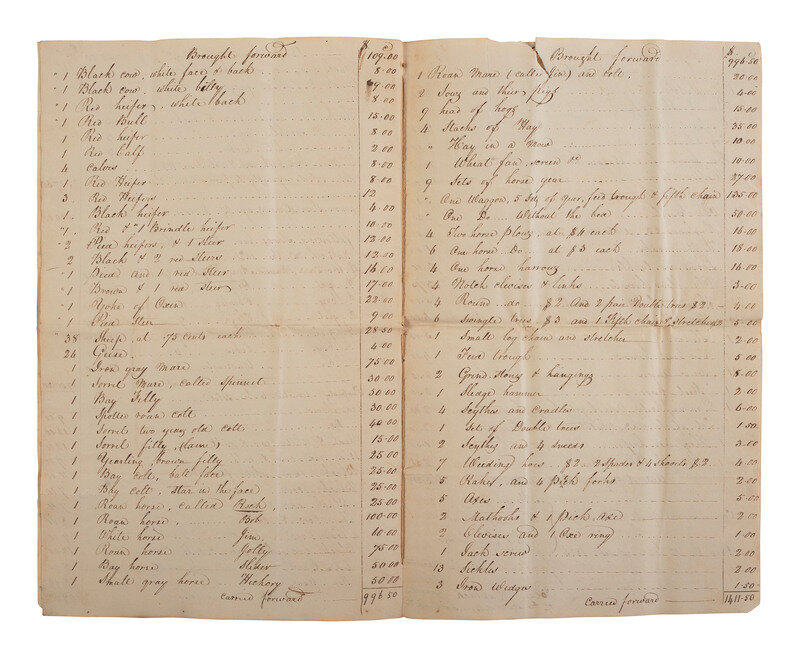 Brought forward $ 109.00
" 1 Black cow, white face & back 8.00
" 1 Black cow, white belly 9.00
" 1 Red heifer, white back 8.00
" 1 Red Bull 15.00
1 Red heifer 8.00
1 Red Calf 2.00
4 Calves 8.00
1 Red Heifer 8.00
3 Red Heifers 12
1 Black heifer 4.00
"1 Red & "1 Brindle heifer 10.00
"2 Pied heifers, & 1 Steer 12.00
2 Black & 2 red Steers 12.00
"1 Pied and 1 red Steer 16.00
"1 Brown & 1 red steer 17.00
"1 Yoke of Oxen 22.00
1 Pied Steer 9.00
"38 Sheep at .75 cents each 28.50
26 Geese 4.00
1 Iron gray mare 75.00
1 Sorrel Mare, called Spinnet 30.00
1 Bay Filly 50.00
1 Spotted roan colt 30.00
1 Sorrel two years old colt 40.00
1 Sorrel filly, 15.00
1 Yearling brown filly 25.00
1 Bay colt, bald face 25.00
1 Bay colt, star in the face 25.00
1 Roan horse, called 25.00
1 Roan horse Bob 100.00
1 White horse Jim 60.00
1 Roan horse Jolly 75.00
1 Bay horse Slider 50.00
1 Small gray horse Hickory 50.00
Carried forward 996.50
Brought forward $ 996.50
1 Roan Mare (called Fin) and colt, 20.00
2 Sows and their pigs 4.00
9 head of hogs 15.00
4 Stacks of Hay 35.00
" Hay in a Mow 10.00
1 Wheat fan, screen &c 10.00
9 Sets of horse gear 27.00
" One Waggon, 5 Sets of gear, feed trough & fifth chain 135.00
" One Do. Without the bed 50.00
4 Two horse plows, at $4 each 16.00
6 One horse Do. at $3 each 18.00
4 One horse harrows 16.00
4 Notch clevises & links 3.00
4 Round do. $2 And 2 pair Double trees $2 4.00
6 Swingle trees, $3 and 1 Fifth chain & stretcher 2 5.00
1 Small log chain and stretcher 2.00
1 trough 5.00
2 Grind stones & hangings 8.00
1 Sledge hammer 2.00
4 Scythes and Cradles 6.00
1 Set of Double trees 1.50
2 Scythes and 4 sneeds 3.00
7 Weeding hoes $2 2 Spades & 4 Shovels $2 4.00
5 Rakes and 4 pitch forks 2.00
5 Axes 5.00
2 Mathooks & 1 pick axe 2.00
2 Clevises and 1 Oxe ring 1.00
1 Jack screw 2.00
13 Sickles 2.00
3 Iron Wedges 1.50
Carried forward 1411.50